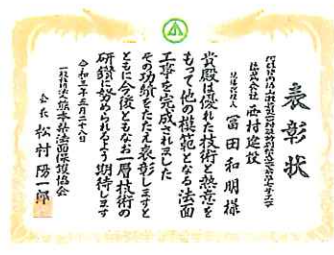 表彰状
株式会社 西村建設
現場代理人 冨田和明様
貴殿は優れた技術と熱意を
もって他の模範となる法面
工事を完成されました
その功績をたたえ表彰しますと
ともに今後ともなお一層技術の
研鑽に努められるよう期待します
令和二年五月二十八日
一般社団法人熊本県法面保護協会
会長 松村陽一郎